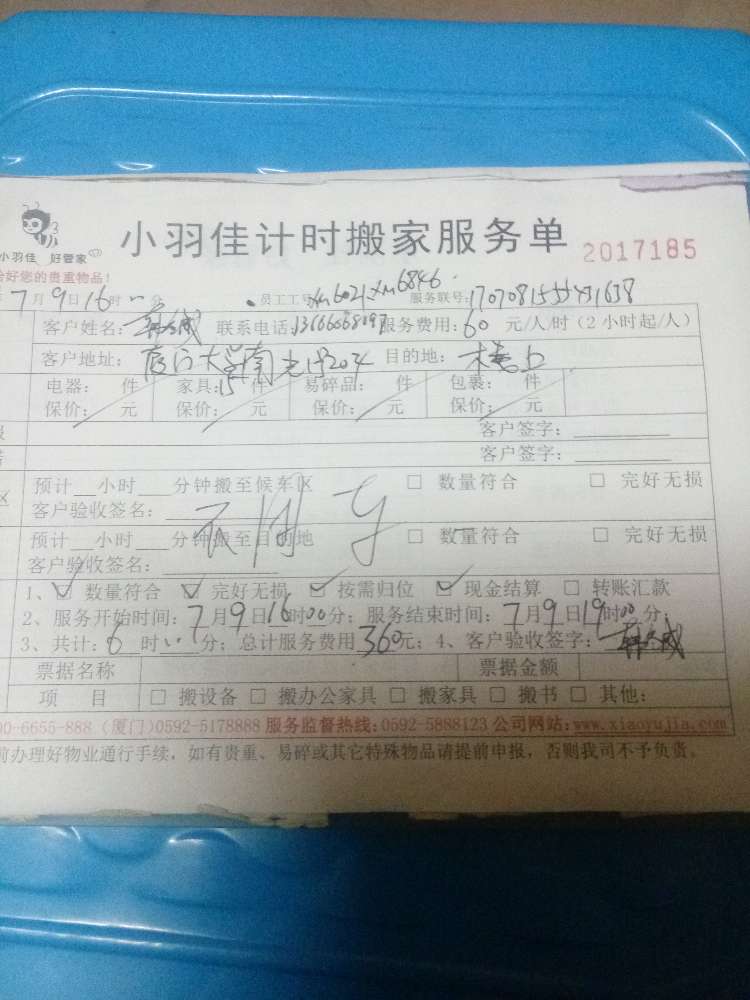 小羽佳 好管家
小羽佳计时搬家服务单 2017185
好您的贵重物品!
7月9日16时 分 员工工号: xm6021.xm6846 服务联号:
客户姓名: 联系电话: 服务费用: 60 元/人/时(2小时起/人)
客户地址: 厦门大学南光1号204 目的地: 楼上
电器: 件 家具: 15 件 易碎品: 件 包裹: 件
保价: 元 保价: 元 保价: 元 保价: 元
客户签字:
客户签字:
预计 小时 分钟搬至候车区 □ 数量符合 □ 完好无损
客户验收签名:
预计 小时 分钟搬至目的地 □ 数量符合 □ 完好无损
客户验收签名:
1、☑ 数量符合 ☑ 完好无损 ☑ 按需归位 ☑ 现金结算 □ 转账汇款
2、服务开始时间: 7月9日16时00分; 服务结束时间: 7月9日19时00分;
3、共计: 6 时 分; 总计服务费用 360 元; 4、客户验收签字:
票据名称 票据金额
项 目 □ 搬设备 □ 搬办公家具 □ 搬家具 □ 搬书 □ 其他:
00-6655-888 (厦门)0592-5178888 服务监督热线:0592-5888123 公司网站:www.xiaoyujia.com
前办理好物业通行手续,如有贵重、易碎或其它特殊物品请提前申报,否则我司不予负责。